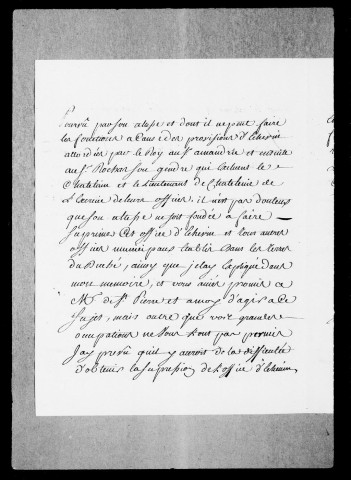 pourvû par son altesse et dont il ne peut faire
les fonctions a cause des provisions d'
accordées par le Roy au Sr amandric et ensuite
au Sr Rochas son gendre qui exclüent le
Chatelain et le Lieutenant de Chatelenie de
l' de leurs offices. il n'est pas douteux
que son altesse ne soit fondée a faire
suprimer cet office d' et tous autres
offices municipaux établis dans les terres
du Duché, ainsy que je l'ay expliqué dans
mon memoire, et vous aviés promis a
Mr de St Pierre et a moy d'agir a ce
sujet, mais outre que vos grandes
occupations ne vous l'ont pas permis
J'ay prevû qu'il y auroit de la difficulté
d'obtenir la supression de l'office d'